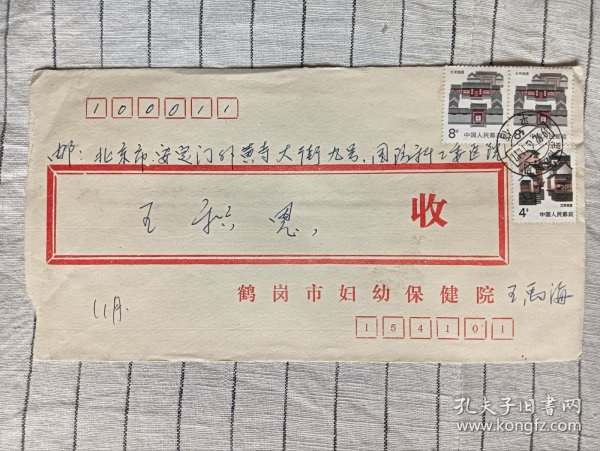 100011
北京民居
8分
中国人民邮政
北京民居
8分
中国人民邮政
4分
江苏民居
中国人民邮政
邮：北京市安定门外黄寺大街九号，国防科工委医院
王 恩，
收
鹤岗市妇幼保健院 王 海
11月.
154101
孔夫子旧书网
www.kongfz.com